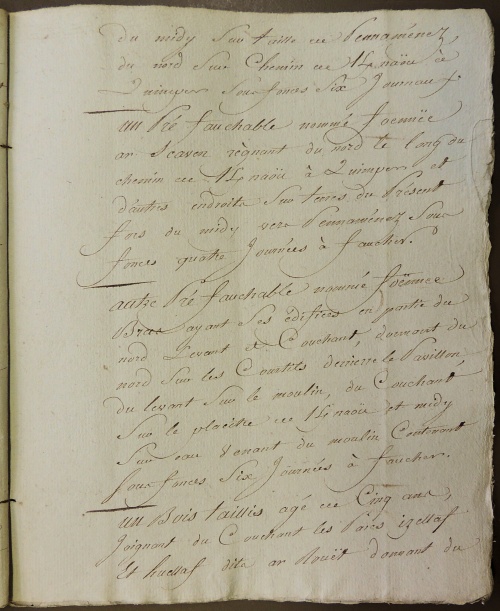 du midy Sur taille de Pennaménez
du nord Sur Chemin de K/naöu à
Quimper Sous fonces Six Journaux
un Pré fauchable nommé foënnëc
ar Scaven règnant du nord le long du
chemin de K/naöu à Quimper, et
d'autres endroits Sur terres du Présent
fors du midy vers Pennaménez Sous
fonces quatre Journées à faucher.
autre Pré fauchable nommé foënnec
Bras ayant Ses édifices en partie du
nord Levant et Couchant, donnant du
nord Sur les Courtils derrierre le Pavillon,
du levant Sur le moulin, du Couchant
Sur le placitre de K/naöu et midy
Sur eau Venant du moulin Contenant
Sous fonces Six Journées à faucher.
un Bois taillis agé de Cinq ans,
Joignant du Couchant les Parcs izellaf
Et huellaf dits ar Rouët donnant du